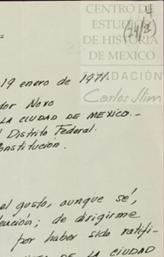 CENTRO DE
ESTUDIOS
DE HISTORIA
DE MEXICO
FUNDACIÓN
Carlos Slim
4
19 enero de 1971.
dor Novo
LA CIUDAD DE MEXICO.-
Distrito Federal.
onstitucion.
el gusto, aunque sé,
de dirigirme
por haber sido ratifi-
DE LA CIUDAD